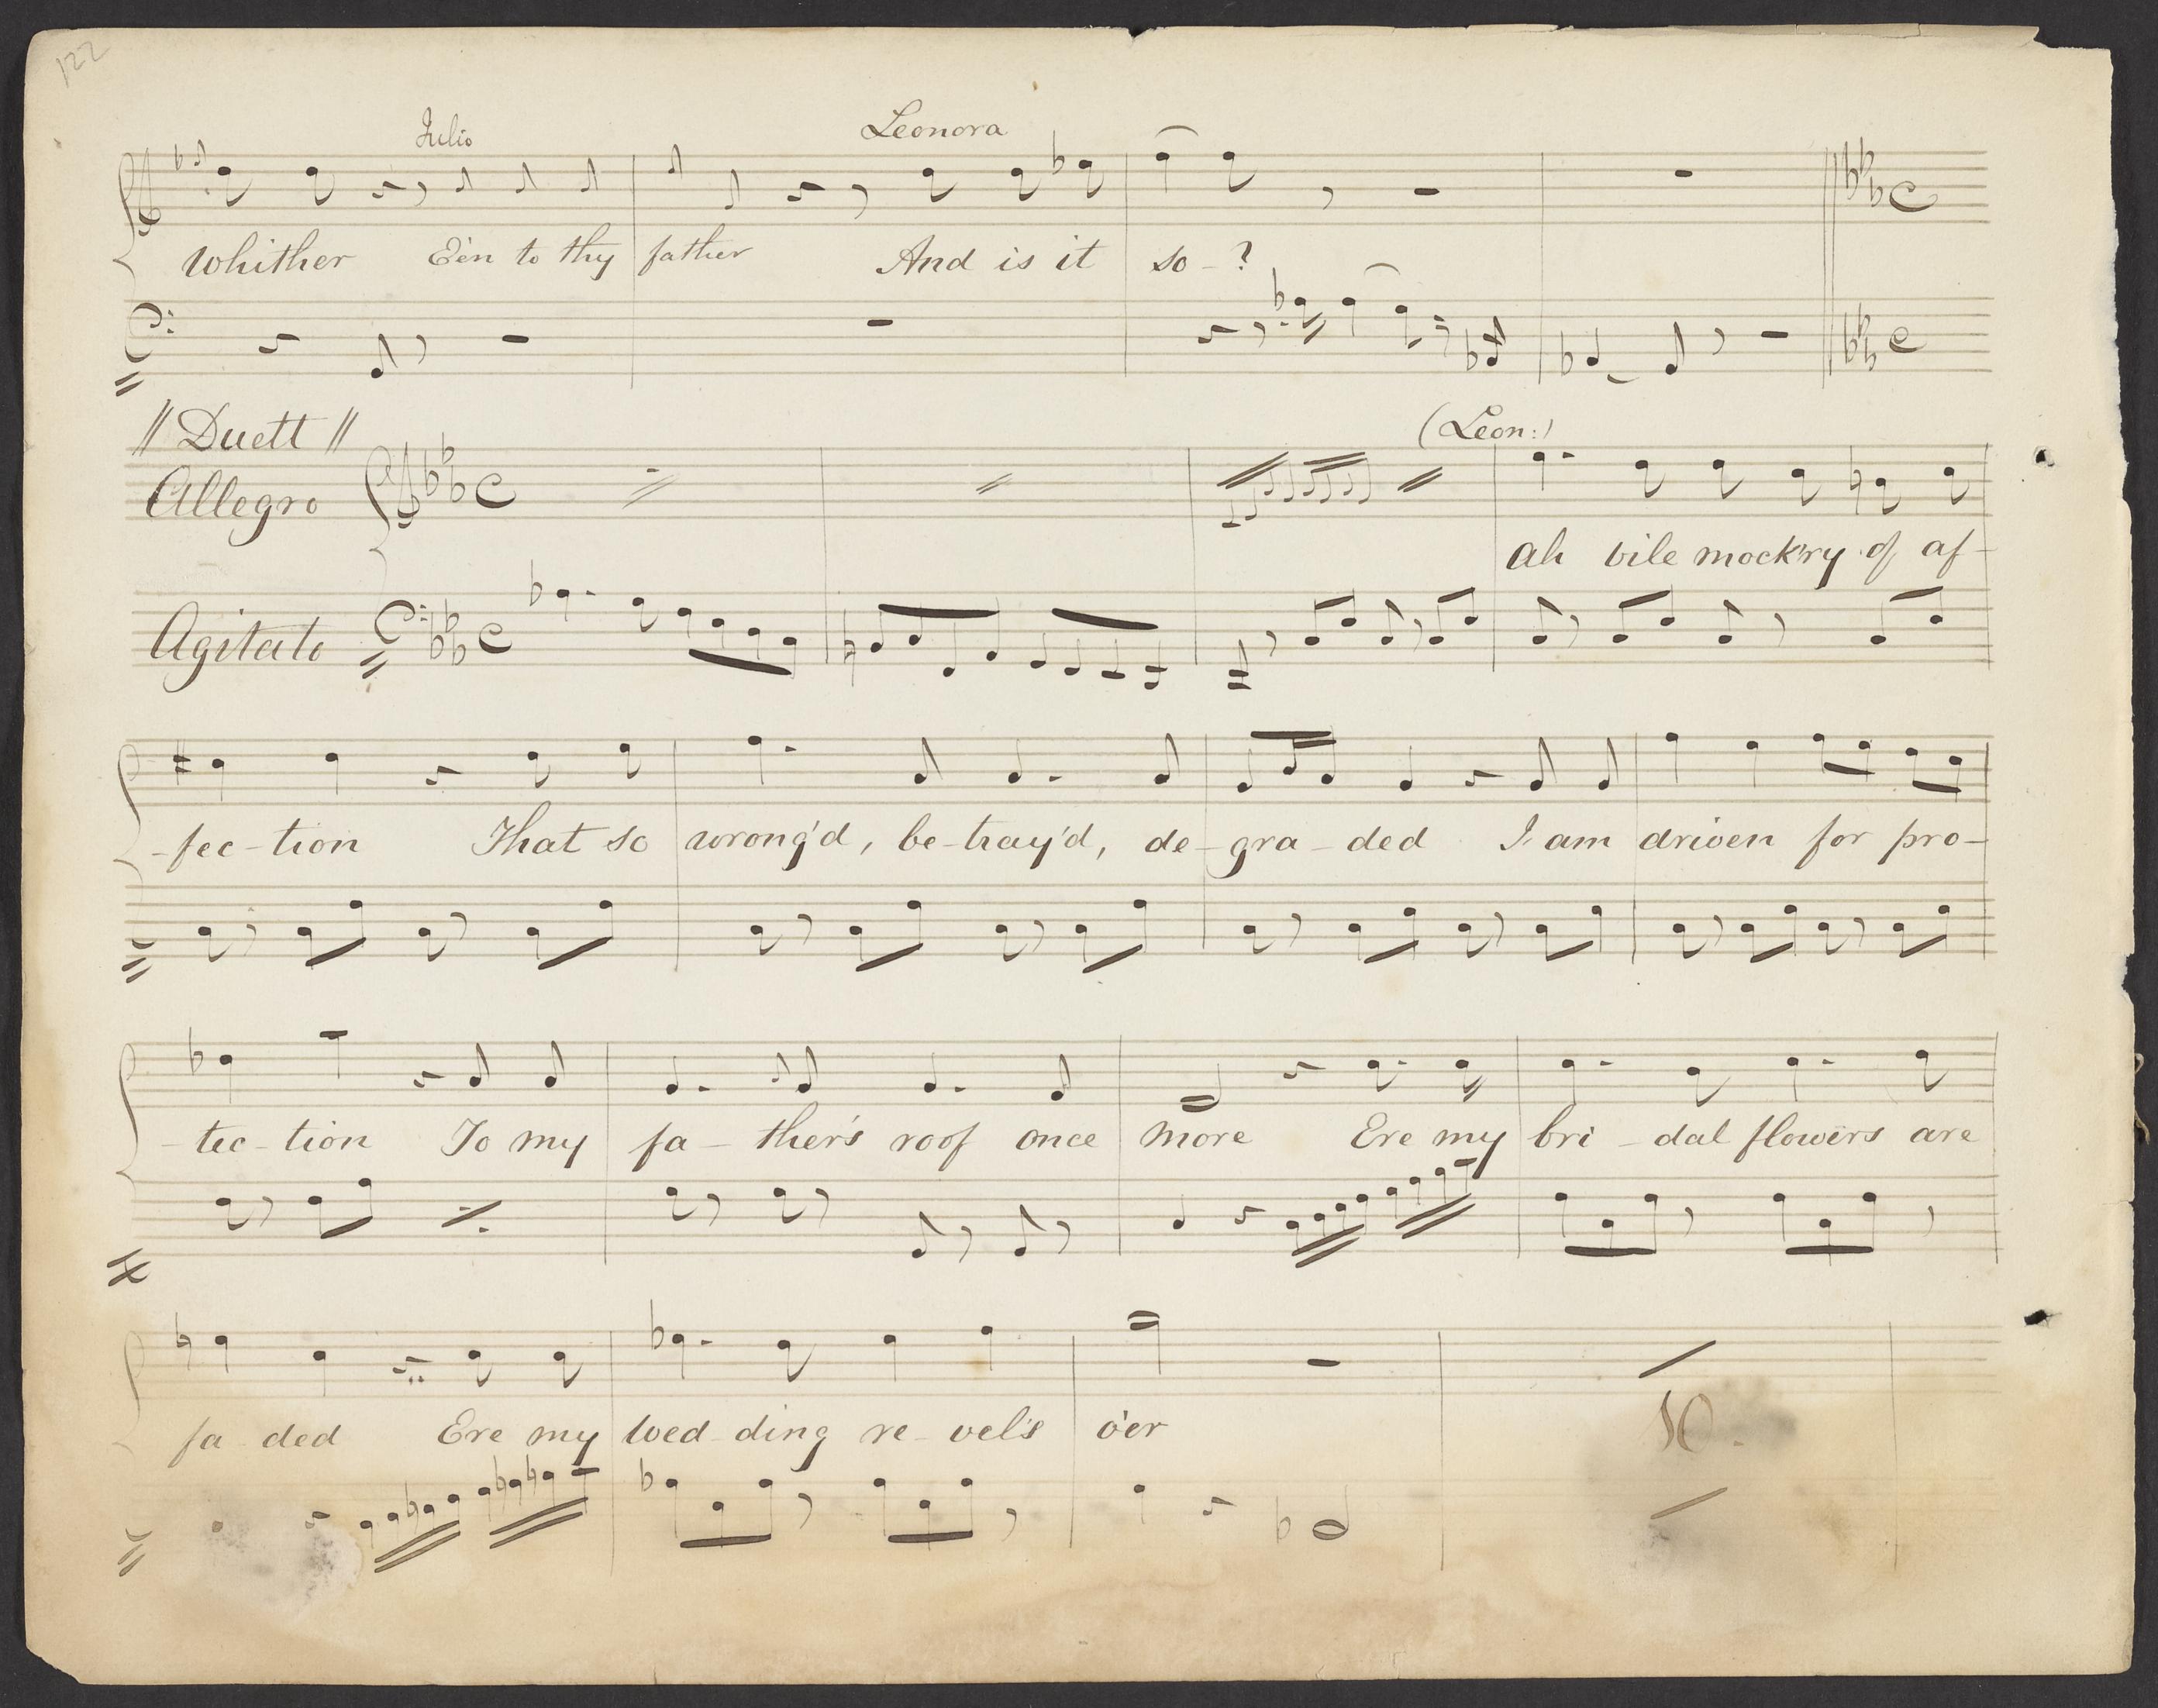 122
Julio Leonora
Whither E'en to thy father And is it so - ?
// Duett // (Leon:)
Allegro
ah vile mock'ry of af-
Agitato
- fec - tion That so wrong'd, be - tray'd, de - gra - ded I am driven for pro -
- tec - tion To my fa - ther's roof once more Ere my bri - dal flowers are
fa - ded Ere my wed - ding re - vel's o'er
10.